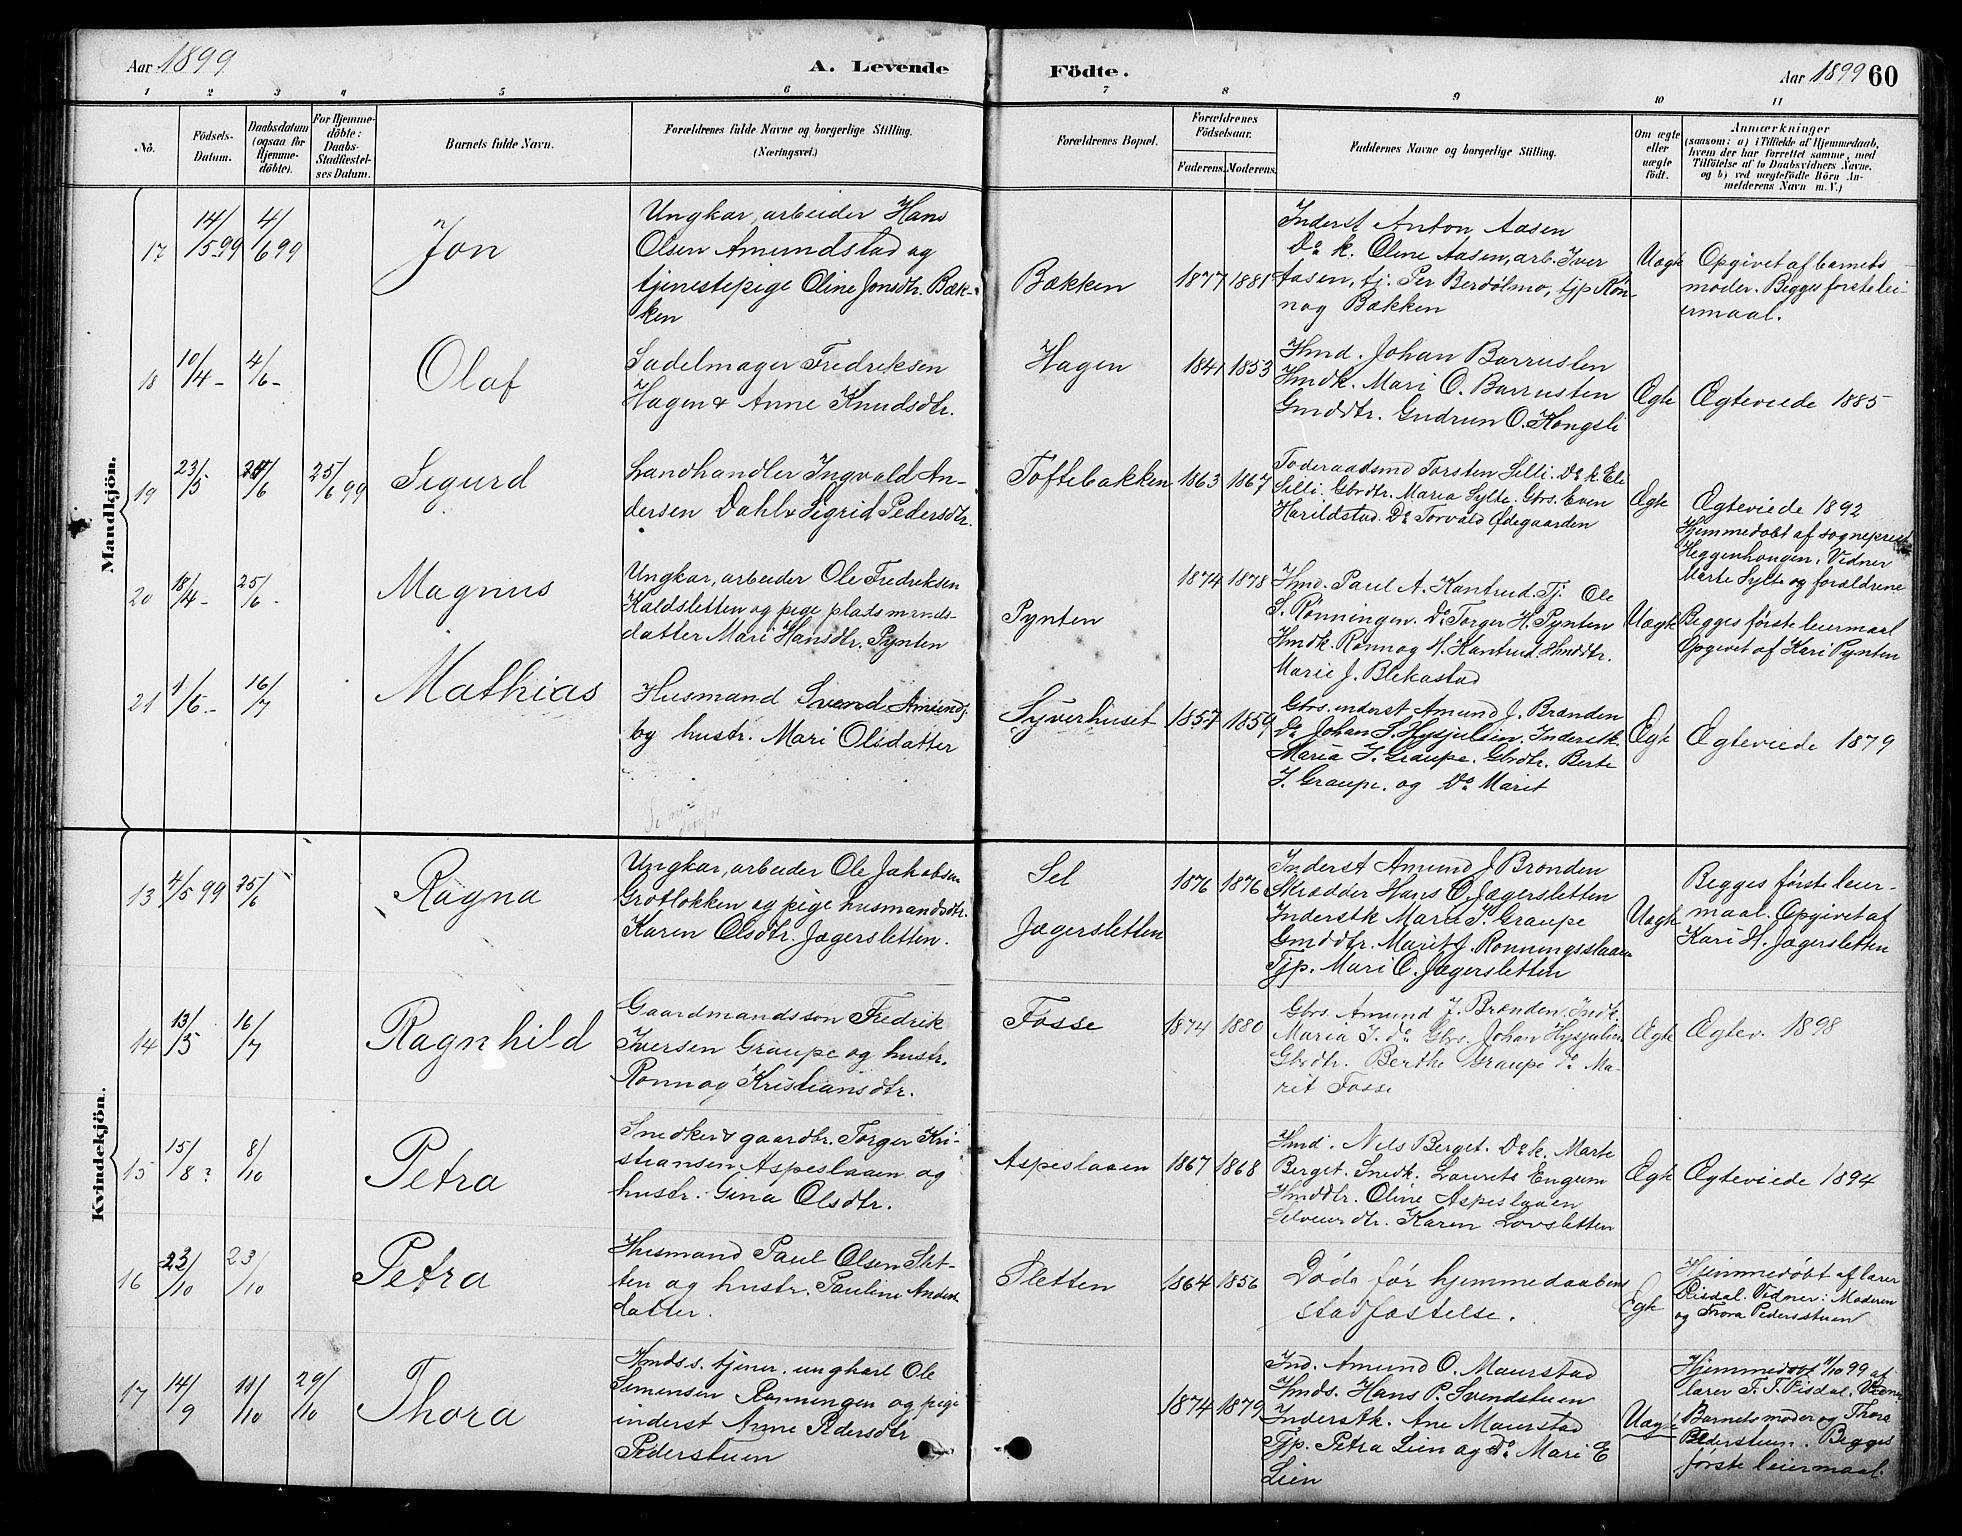 Aar 1899
A. Levende Födte.
Aar 1899 60
1 2 3 4 5 6 7 8 9 10 11
No.
Födsels-
Datum.
Daabsdatum
(ogsaa for
Hjemme-
döbte).
For Hjemme-
döbte:
Daabs-
Stadfæstel-
ses Datum.
Barnets fulde Navn.
Forældrenes fulde Navne og borgerlige Stilling.
(Næringsvei.)
Forældrenes Bopæl.
Forældrenes
Födselsaar.
Faderens. Moderens.
Faddernes Navne og borgerlige Stilling.
Om ægte
eller
uægte
födt.
Anmærkninger
(saasom: a) i Tilfælde af Hjemmedaab,
hvem der har forrettet samme, med
Tilföielse af to Daabsvidners Navne.
og b) ved uægtefödte Börn An-
melderens Navn m. V.)
Mandkjön.
17 14/5-99 4/6 99
Jon
Ungkar, arbeider Hans
Olsen Amundstad og
tjenestepige Oline Jonsdtr. Bæk-
ken
Bækken
1877 1881
Inderst Anton Aasen
Do k. Oline Aasen, arb. Iver
Aasen, tj. Per Berdølmo, tjp Rön-
nog Bækken
Uægte
Opgivet af barnets
moder. Begges første lei-
ermaal.
18 10/4- 4/6-
Olaf
Sadelmager Fredriksen
Hagen & Anne Knudsdtr.
Hagen
1841 1853
Hmd. Johan Barrusten
Hmdk. Mari O. Barrusten
Gmddtr. Gudrun O. Kongsli
Ægte
Ægteviede 1885
19 23/5 25/6 25/6 99
Sigurd
Landhandler Ingvald An-
dersen Dahl & Sigrid Pedersdtr.
Toftebakken
1863 1867
Föderaadsmd Torsten Silli. Do k. Eli
Silli. Gbrdtr. Maria Sylte. Gbrs. Even
Harildstad. Do Torvald Ødegaarden
Ægte
Ægteviede 1892
Hjemmedøbt af sogneprest
Heggenhougen. Vidner
Marte Sylte og forældrene
20 18/4- 25/6-
Magnus
Ungkar, arbeider Ole Fredriksen
Kaldsletten og pige pladsmands-
datter Mari Hansdtr. Pynten
Pynten
1874 1878
Hmd. Paul A. Kantrud. Tj. Ole
S. Rönningen. Do Torger H. Pynten
Hmdk. Rønnog H. Kantrud. Hmddtr.
Marie J. Blekastad
Uægte
Begges første leiermaal
Opgivet af Kari Pynten
21 1/6- 16/7
Mathias
Husmand Svend Amunds-
by hustr. Mari Olsdatter
Syverhuset
1857 1859
Gbrs. inderst Amund J. Brænden
Do Johan S. Hysjulien. Inderstk.
Maria J. Graupe. Gbrdtr. Berte
J. Graupe. og Do Marit
Ægte
Ægteviede 1879
Kvindekjön.
13 4/5 99 25/6
Ragna
Ungkar, arbeider Ole Jakobsen
Grøtløkken og pige husmandsdtr.
Karen Olsdtr. Jægersletten.
Sel
Jægersletten
1876 1876
Inderst Amund J Brænden
Skrædder Hans O. Jægersletten
Inderstk Maria J. Graupe
Gmddtr. Marit J. Rønningsslaaen
Tjp. Mari O. Jægersletten
Uægte
Begges første leier-
maal. Opgivet af
Kari H. Jægersletten
14 13/5 16/7
Ragnhild
Gaardmandssøn Fredrik
Iversen Graupe og hustr.
Rønnog Kristiansdtr.
Fosse
1874 1880
Gbrs. Amund J. Brænden. Indk.
Maria J. Do. Gbrs. Johan Hysjulien
Gbrdtr. Berthe Graupe Do. Ma-
rit Fosse
Ægte
Ægtev. 1898
15 15/8? 8/10
Petra
Snedker & gaardbr. Torger Kri-
stiansen Aspeslaaen og
hustr. Gina Olsdtr.
Aspeslaaen
1867 1868
Hmd. Nils Berget. Do k. Marte
Berget. Snedk. Laurits Engum
Hmddtr. Oline Aspeslaaen
Selveierdtr. Karen Lovsletten
Ægte
Ægteviede 1894
16 22/10 23/10
Petra
Husmand Paul Olsen Slet-
ten og hustr. Pauline Anders-
datter.
Sletten
1864 1856
Døde før hjemmedaabens
stadfæstelse.
Ægte
Hjemmedøbt af lærer
Risdal. Vidner: Moderen
og Thora Pedersstuen
17 14/9 11/10 29/10
Thora
Hmdss. tjener, ungkarl Ole
Simensen Rønningen og pige
inderst Anne Pedersdtr
Pederstuen
1874 1879
Ind. Amund O. Maurstad
Hmds. Hans P. Svendstuen
Inderstk. Ane Maurstad
Tjp. Petra Lien og Do Mari E
Lien
Uægte
Hjemmedøbt 11/10 99 af
lærer T. T. Risdal. Vidner
Barnets moder og Thora
Pederstuen. Begges
første leiermaal.